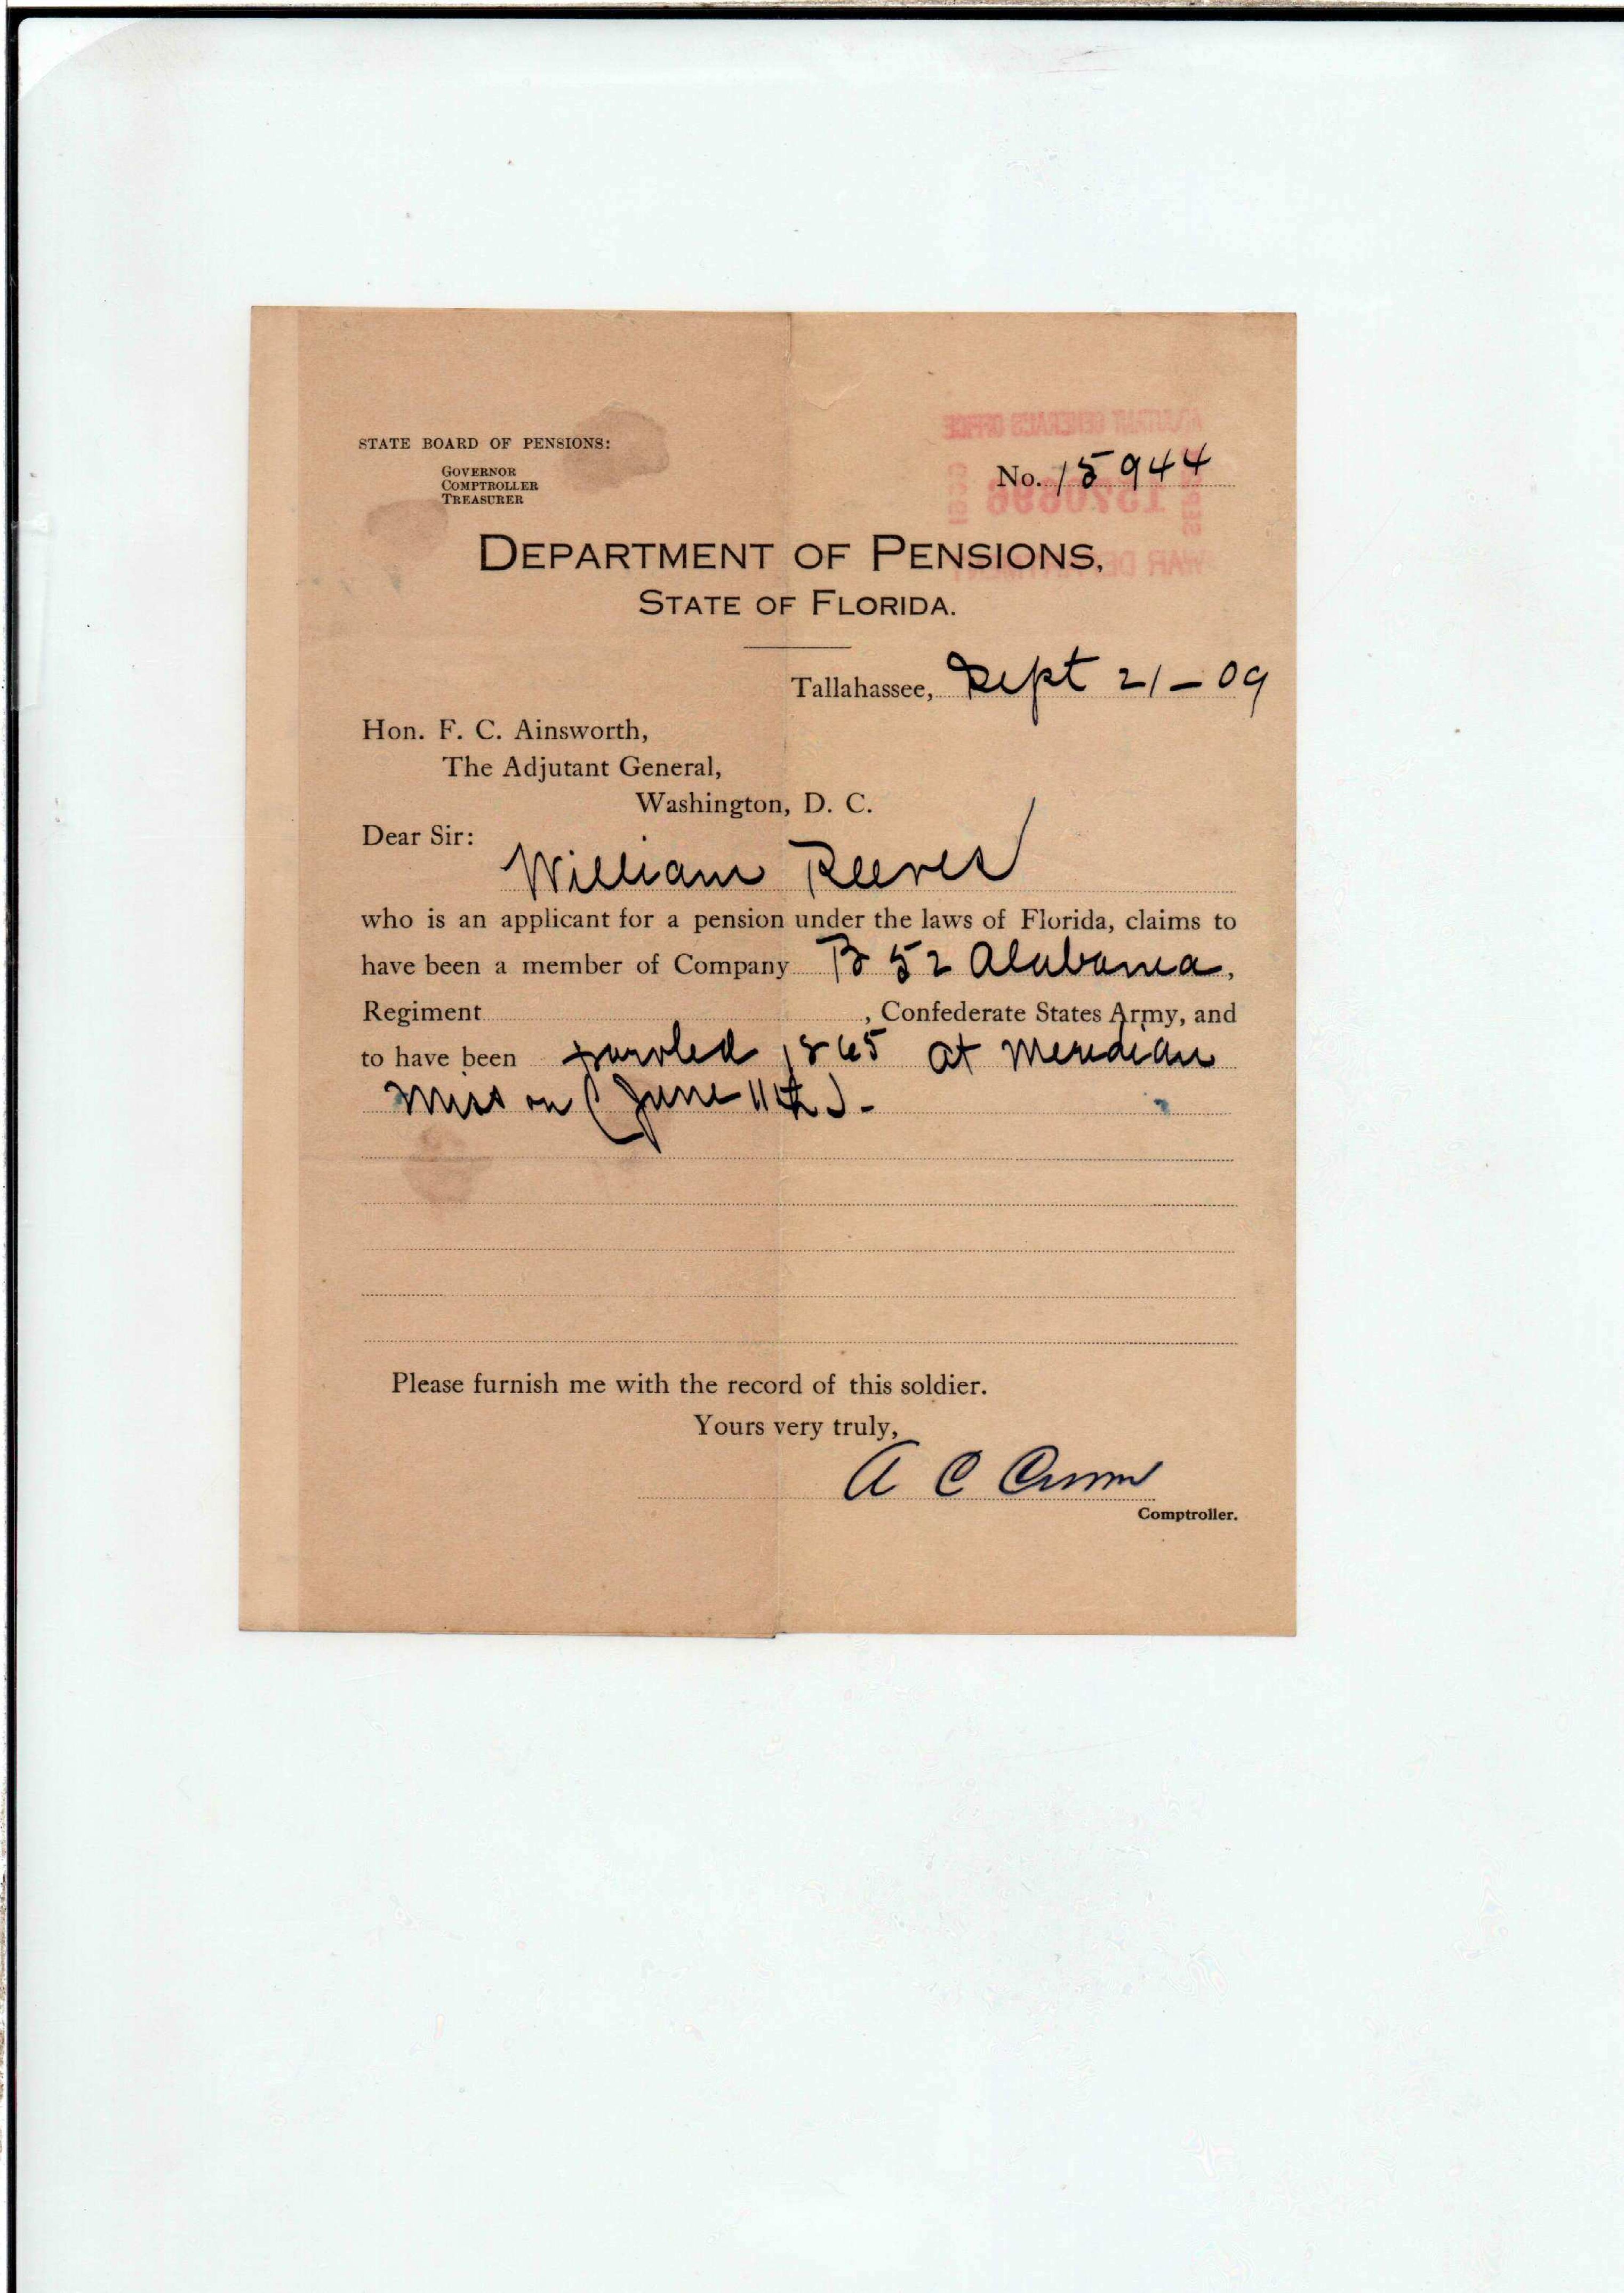 STATE BOARD OF PENSIONS:
GOVERNOR
COMPTROLLER
TREASURER
No. 15944
DEPARTMENT OF PENSIONS,
STATE OF FLORIDA.
Tallahassee, Sept 21-09
Hon. F. C. Ainsworth,
The Adjutant General,
Washington, D. C.
Dear Sir:
William Reeves
who is an applicant for a pension under the laws of Florida, claims to
have been a member of Company B 52 Alabama,
Regiment , Confederate States Army, and
to have been paroled 1865 at Meredian
Miss on (June 11th)-
Please furnish me with the record of this soldier.
Yours very truly,
A C Croom
Comptroller.